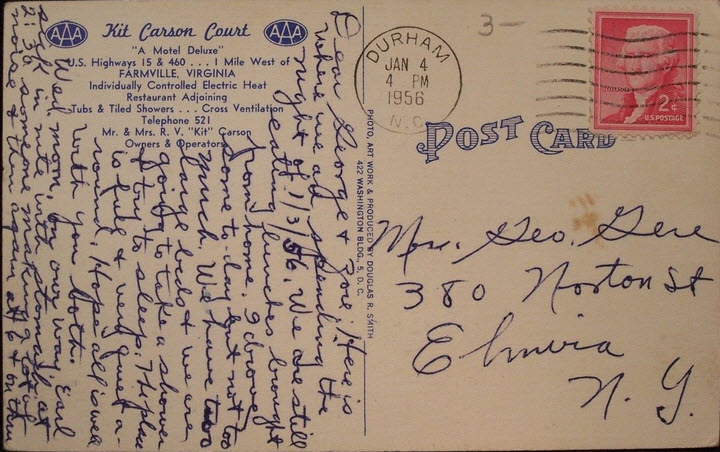 AAA Kit Carson Court AAA
"A Motel Deluxe"
U.S. Highways 15 & 460 . . . 1 Mile West of
FARMVILLE, VIRGINIA
Individually Controlled Electric Heat
Restaurant Adjoining
Tubs & Tiled Showers . . . Cross Ventilation
Telephone 521
Mr. & Mrs. R. V. "Kit" Carson
Owners & Operators
Dear George & Zoe: Here is
where we are spending the
night of 1/3/56. We are still
eating lunches brought
from home. I drove
some to-day but not too
much. We have two
large beds & we are
going to take a shower
& try to sleep. The place
is full & very quiet a-
round. Hope all is well
with you both.
Wed. morn, on our way. Earl
sick in nite with stomach, at
2:30 someone making a lot of
noise & then again at 6 on their
PHOTO, ART WORK & PRODUCED BY DOUGLAS R. SMITH
422 WASHINGTON BLDG., D. C.
3-
DURHAM
JAN 4
4 PM
1956
N.C.
JEFFERSON
2¢
U.S. POSTAGE
POST CARD
Mrs. Geo. Gere
380 Norton St
Elmira
N. Y.